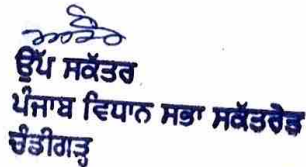 ਉਪ ਸਕੱਤਰ
ਪੰਜਾਬ ਵਿਧਾਨ ਸਭਾ ਸਕੱਤਰੇਤ
ਚੰਡੀਗੜ੍ਹ